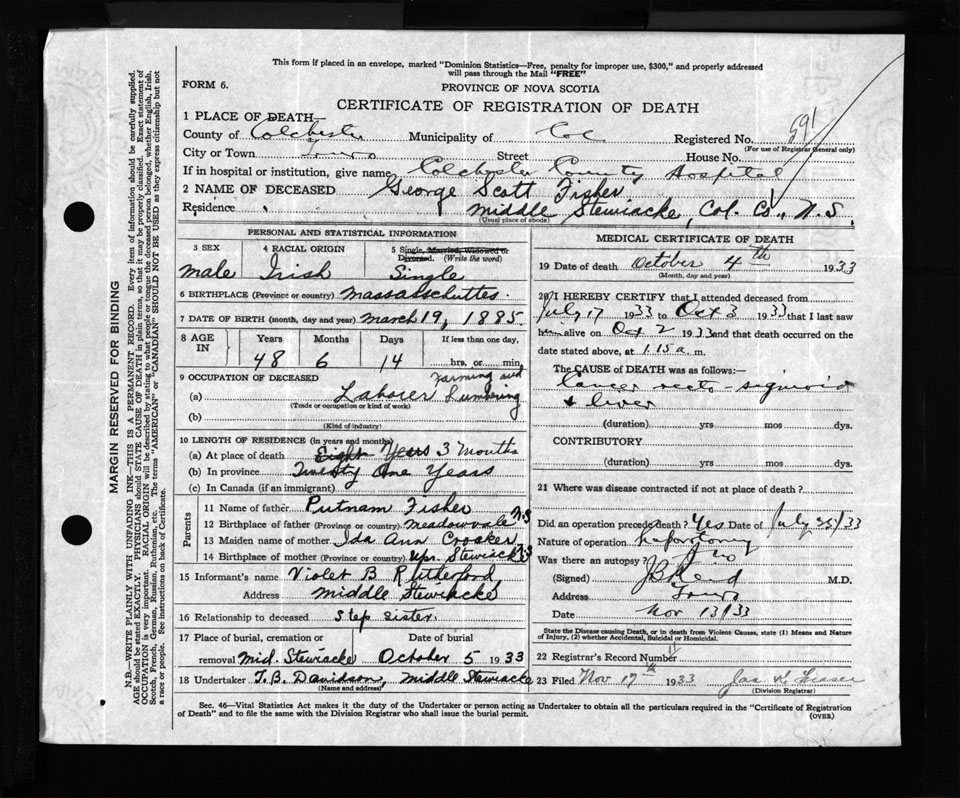 This form if placed in an envelope, marked "Dominion Statistics—Free, penalty for improper use, $300," and properly addressed
will pass through the Mail "FREE"
FORM 6.
PROVINCE OF NOVA SCOTIA
CERTIFICATE OF REGISTRATION OF DEATH
1 PLACE OF DEATH—
County of Colchester Municipality of Col Registered No. 591
(For use of Registrar General only)
City or Town Truro Street House No.
If in hospital or institution, give name Colchester County Hospital
2 NAME OF DECEASED George Scott Fisher
Residence Middle Stewiacke, Col. Co., N.S.
(Usual place of abode)
PERSONAL AND STATISTICAL INFORMATION
3 SEX 4 RACIAL ORIGIN 5 Single, Married, Widowed or
Divorced. (Write the word)
male Irish Single
6 BIRTHPLACE (Province or country) Massasschuttes.
7 DATE OF BIRTH (month, day and year) March 19, 1885.
8 AGE IN Years Months Days If less than one day,
48 6 14 hrs. or min.
9 OCCUPATION OF DECEASED Farming and
(a) Laborer Lumbering
(Trade or occupation or kind of work)
(b)
(Kind of industry)
10 LENGTH OF RESIDENCE (in years and months)
(a) At place of death Eight Years 3 Months
(b) In province Twenty One Years
(c) In Canada (if an immigrant)
Parents
11 Name of father Putnam Fisher
12 Birthplace of father (Province or country) Meadowvale N.S
13 Maiden name of mother Ida Ann Crooker
14 Birthplace of mother (Province or country) Upr. Stewiacke N.S
15 Informant's name Violet B Rutherford
Address Middle Stewiacke
16 Relationship to deceased Step sister.
17 Place of burial, cremation or Date of burial
removal Mid. Stewiacke October 5 1933
18 Undertaker T.B. Davidson, Middle Stewiacke
(Name and address)
MEDICAL CERTIFICATE OF DEATH
19 Date of death October 4th 1933
(Month, day and year)
20 I HEREBY CERTIFY that I attended deceased from
July 17 1933 to Oct 3 1933 that I last saw
him alive on Oct 2 1933 and that death occurred on the
date stated above, at 1.15 a. m.
The CAUSE OF DEATH was as follows:—
Cancer recto sigmoid
& liver
(duration) yrs mos dys.
CONTRIBUTORY
(duration) yrs mos dys.
21 Where was disease contracted if not at place of death?
Did an operation precede death? Yes Date of July 25/33
Nature of operation Laporotomy
Was there an autopsy? No
(Signed) M.D.
Address Truro
Date Nov 13/33
State the Disease causing Death, or in death from Violent Causes, state (1) Means and Nature
of Injury, (2) whether Accidental, Suicidal or Homicidal.
22 Registrar's Record Number 11
23 Filed Nov 17th 1933 Jas K Fraser
(Division Registrar)
Sec. 46—Vital Statistics Act makes it the duty of the Undertaker or person acting as Undertaker to obtain all the particulars required in the "Certificate of Registration
of Death" and to file the same with the Division Registrar who shall issue the burial permit. (OVER)
MARGIN RESERVED FOR BINDING
N.B.—WRITE PLAINLY WITH UNFADING INK—THIS IS A PERMANENT RECORD. Every item of information should be carefully supplied.
AGE should be stated EXACTLY. PHYSICIANS should STATE CAUSE OF DEATH in plain terms, so that it may be properly classified. Exact statement of
OCCUPATION is very important. RACIAL ORIGIN will be described by stating to what people or tongue the deceased person belonged, whether English, Irish,
Scotch, French, German, Russian, Ruthenian, etc. The terms "AMERICAN" or "CANADIAN" SHOULD NOT BE USED as they express citizenship but not
a race or people. See instructions on back of Certificate.